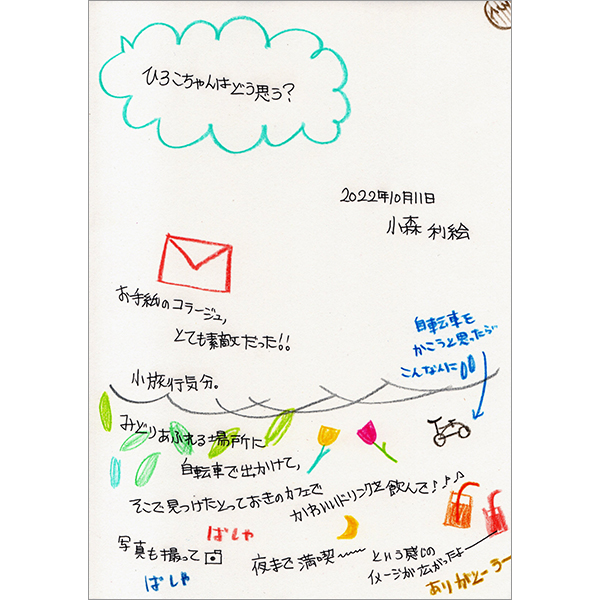 ひろこちゃんはどう思う？
2022年10月11日
小森 利絵
お手紙のコラージュ、
とても素敵だった!!
自転車を
かこうと思ったら
こんなんに
小旅行気分。
みどりあふれる場所に
自転車で出かけて、
そこで見つけたとっておきのカフェで
かわいいドリンクを飲んで♪♪♪
写真も撮って
ぱしゃ
ぱしゃ
夜まで満喫〜〜
という感じの
イメージが広がったよー
ありがとーうー